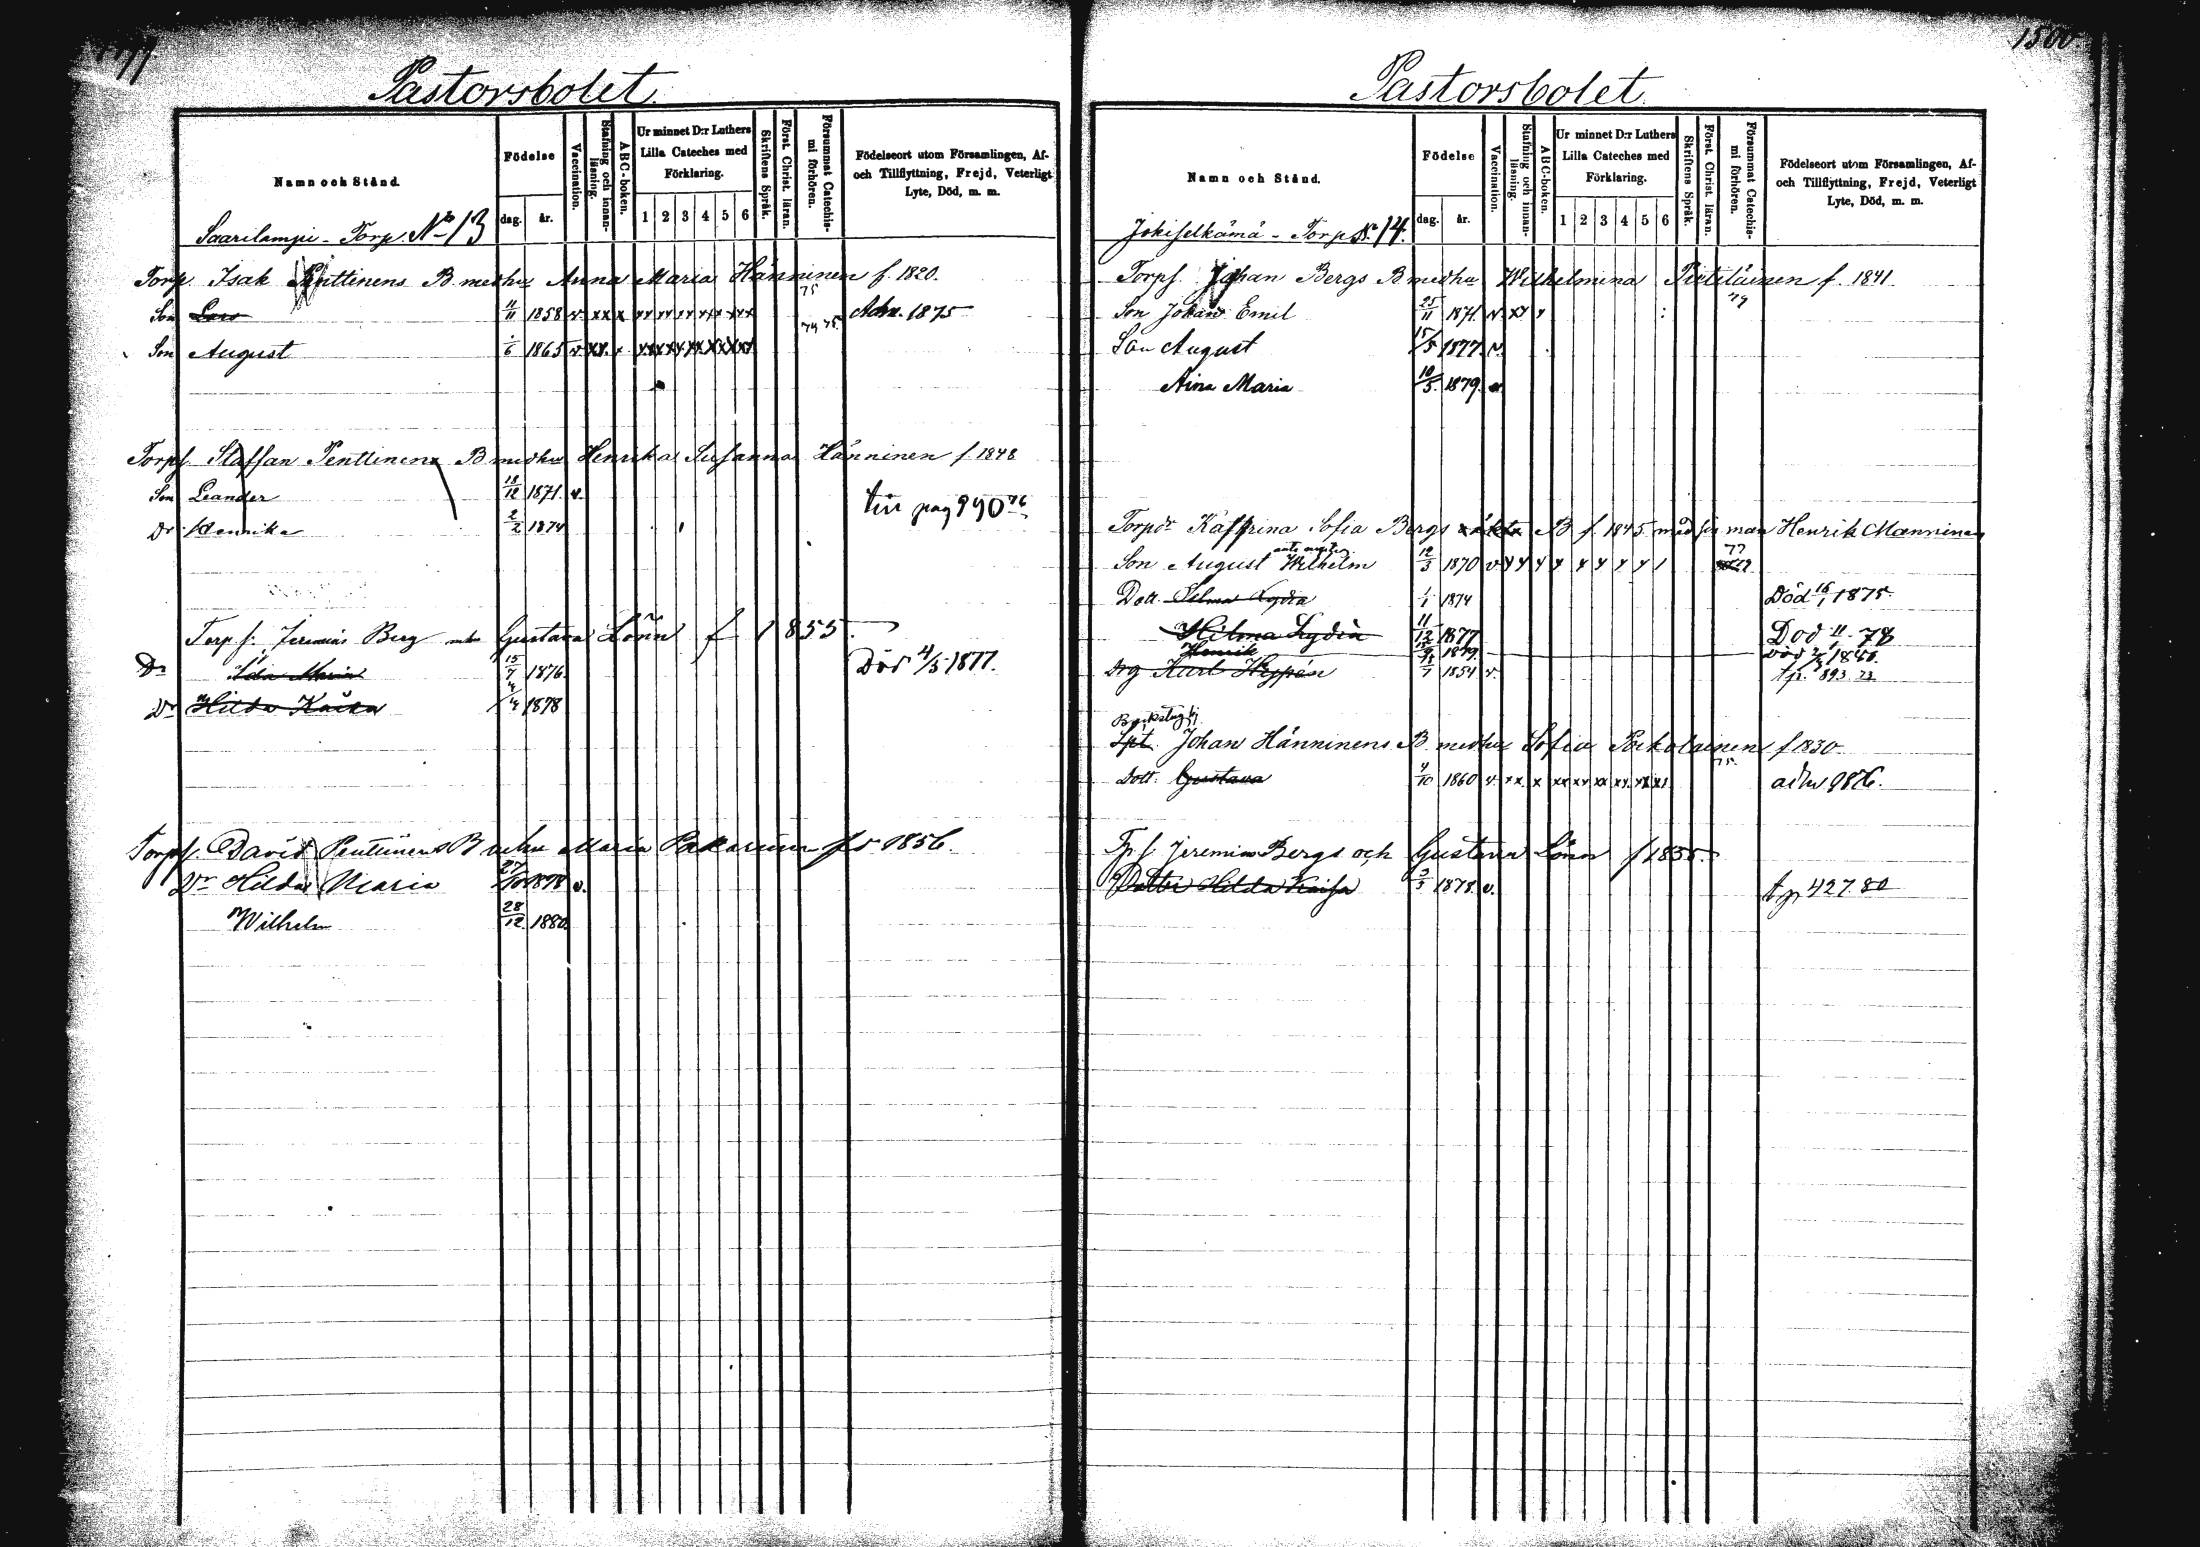 Pastorsbolet.
Namn och Stånd.
Födelse
dag.
år.
Vaccination.
Stafning och innan-
läsning.
ABC-boken.
Ur minnet D:r Luthers
Lilla Cateches med
Förklaring.
1 2 3 4 5 6
Skriftens Språk.
Först. Christ. läran.
Försummat Catechis-
mi förhören.
Födelseort utom Församlingen, Af-
och Tillflyttning, Frejd, Veterligt
Lyte, Död, m. m.
Saarilampi - Torp. No 13
Torp. Isak Penttinens B med hu Anna Maria Hänninen f. 1820.
75
Son Lars 4/11 1858 v xx x xx xx xx xx xx xx Adm. 1875
74 75
Son August 1/6 1865 v xx x xx xx xx xx xx xx
Torpf. Staffan Penttinens B med hu Henrika Susanna Hänninen f. 1848
Son Leander 18/12 1871. v.
tir pag 990 76
Dr Hennika 2/2 1874
Torpf. Jeremias Berg Gustava Lönn f 1855.
Dr Ida Maria 15/7 1876. Död 4/5 1877.
Dr Hilda Kaisa 4/4 1878
Torpf. David Penttinens B Maria Pakarinen 1856.
Dr Hilda Maria 27/10 1878 v.
Wilhelm 28/12 1880.
1500
Pastorsbolet
Namn och Stånd.
Födelse
dag.
år.
Vaccination.
Stafning och innan-
läsning.
ABC-boken.
Ur minnet D:r Luthers
Lilla Cateches med
Förklaring.
1 2 3 4 5 6
Skriftens Språk.
Först. Christ. läran.
Försummat Catechis-
mi förhören.
Födelseort utom Församlingen, Af-
och Tillflyttning, Frejd, Veterligt
Lyte, Död, m. m.
Jokiselkämä - Torp No 14.
Torpf. Johan Bergs B med hu Wilhelmina Pietiläinen f. 1841.
79
Son Johan Emil 25/11 1871. v xx x
Son August 15/5 1877. v.
Aina Maria 10/5. 1879. v
Torpdr Kathrina Sofia Bergs B f. 1845 med sin man Henrik Manninen
Son August Wilhelm 12/3 1870 v
77
Dott. Selma Lydia 1/1 1874 Död 16/1 1875.
Hilma Lydia 11/12 1877 Död 11/1 78
Henrik 1879. Död 1880.
Drg Karl Heppén 1854 v. tp. 893. 73
Backstugkj
Spt. Johan Hänninens B med hu Sofia Pakolainen f 1830.
75.
Dott. Gustava 4/10 1860 v. xx. x xx xx xx xx xx xx adm 1876.
Tpf Jeremias Bergs och Gustava Lönn f 1855.
Dotter Hilda Kaisa 3/3 1878. v. tp 427. 80